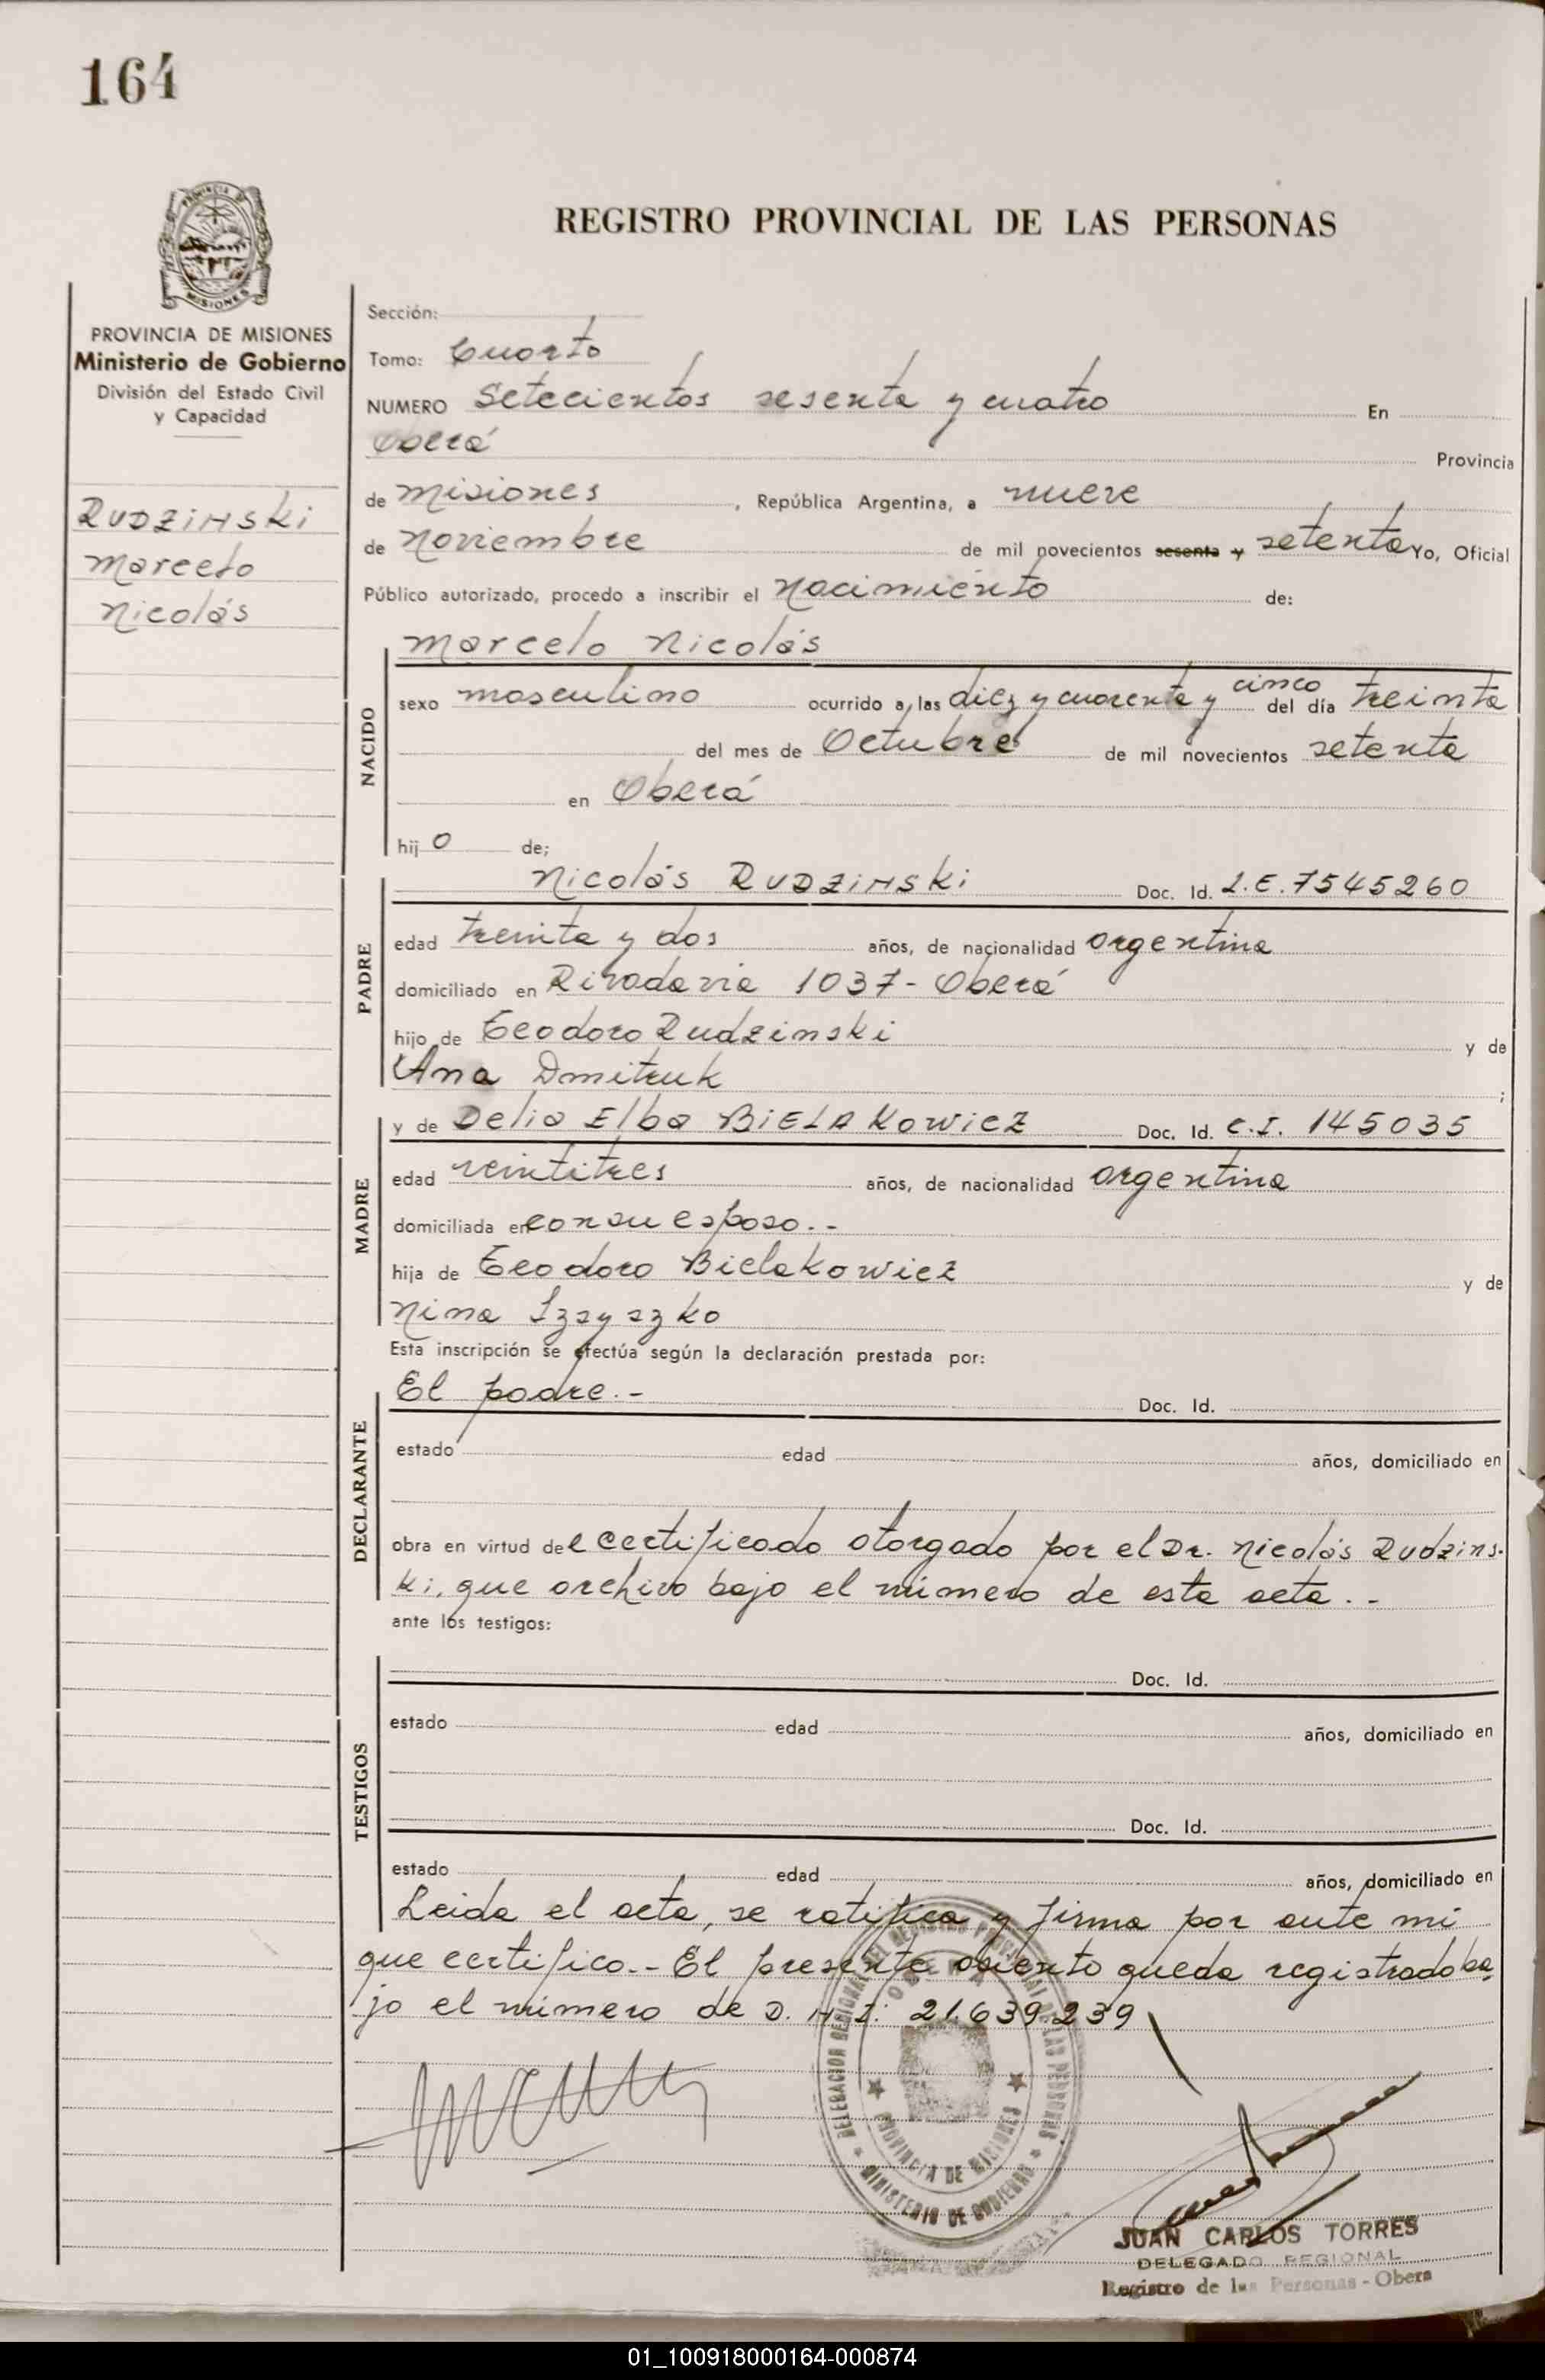 164
PROVINCIA DE
MISIONES
PROVINCIA DE MISIONES
Ministerio de Gobierno
División del Estado Civil
y Capacidad
RUDZINSKI
Marcelo
Nicolás
REGISTRO PROVINCIAL DE LAS PERSONAS
Sección:
Tomo: Cuarto
NUMERO Setecientos sesenta y cuatro En
Oberá Provincia
de Misiones, República Argentina, a nueve
de Noviembre de mil novecientos sesenta y setenta Yo, Oficial
Público autorizado, procedo a inscribir el Nacimiento de:
NACIDO
Marcelo Nicolás
sexo masculino ocurrido a las diez y cuarenta y cinco del día treinta
del mes de Octubre de mil novecientos setenta
en Oberá
hijo de;
PADRE
Nicolás RUDZINSKI Doc. Id. L.E. 7545260
edad treinta y dos años, de nacionalidad argentina
domiciliado en Rivadavia 1037 - Oberá
hijo de Teodoro Rudzinski y de
Ana Dmitruk ;
MADRE
y de Delia Elba BIELAKOWICZ Doc. Id. C.I. 145035
edad veintitres años, de nacionalidad argentina
domiciliada en con su esposo.-
hija de Teodoro Bielakowicz y de
Nina
Esta inscripción se efectúa según la declaración prestada por:
DECLARANTE
El padre.- Doc. Id.
estado edad años, domiciliado en
obra en virtud del certificado otorgado por el Dr. Nicolás Rudzins-
ki, que archivo bajo el número de esta acta.-
ante los testigos:
TESTIGOS
Doc. Id.
estado edad años, domiciliado en
Doc. Id.
estado edad años, domiciliado en
Leida el acta, se ratifica y firma por ante mi
que certifico.- El presente asiento queda registrado ba-
jo el número de D.N.I. 21.639.239
DELEGACION REGIONAL DEL REGISTRO PROVINCIAL DE LAS PERSONAS
OBERA
PROVINCIA DE MISIONES
MINISTERIO DE GOBIERNO
JUAN CARLOS TORRES
DELEGADO REGIONAL
Registro de las Personas - Obera
01_100918000164-000874